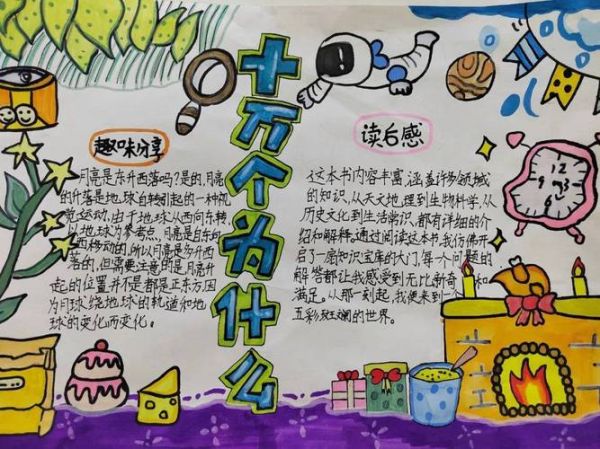 十万个为什么
趣味分享
月亮是东升西落吗?是的,月亮
的升落是地球自转引起的一种视
觉运动,由于地球从西向东转
以地球为参考点,月亮是自东向
西移动的,所以月亮是东升西
落的,但需要注意的是月亮升
起的位置并不是都是正东方因
为月球绕地球的轨道和地
球的变化而变化。
读后感
这本书内容丰富,涵盖许多领域
的知识,从天文地理到生物科学,从
历史文化到生活常识,都有详细的介
绍和解释,通过阅读这本书,我仿佛开
启了一扇知识宝库的大门,每一个问题的
解答都让我感受到无比新奇和
满足。从那一刻起,我便来到一个
五彩斑斓的世界。